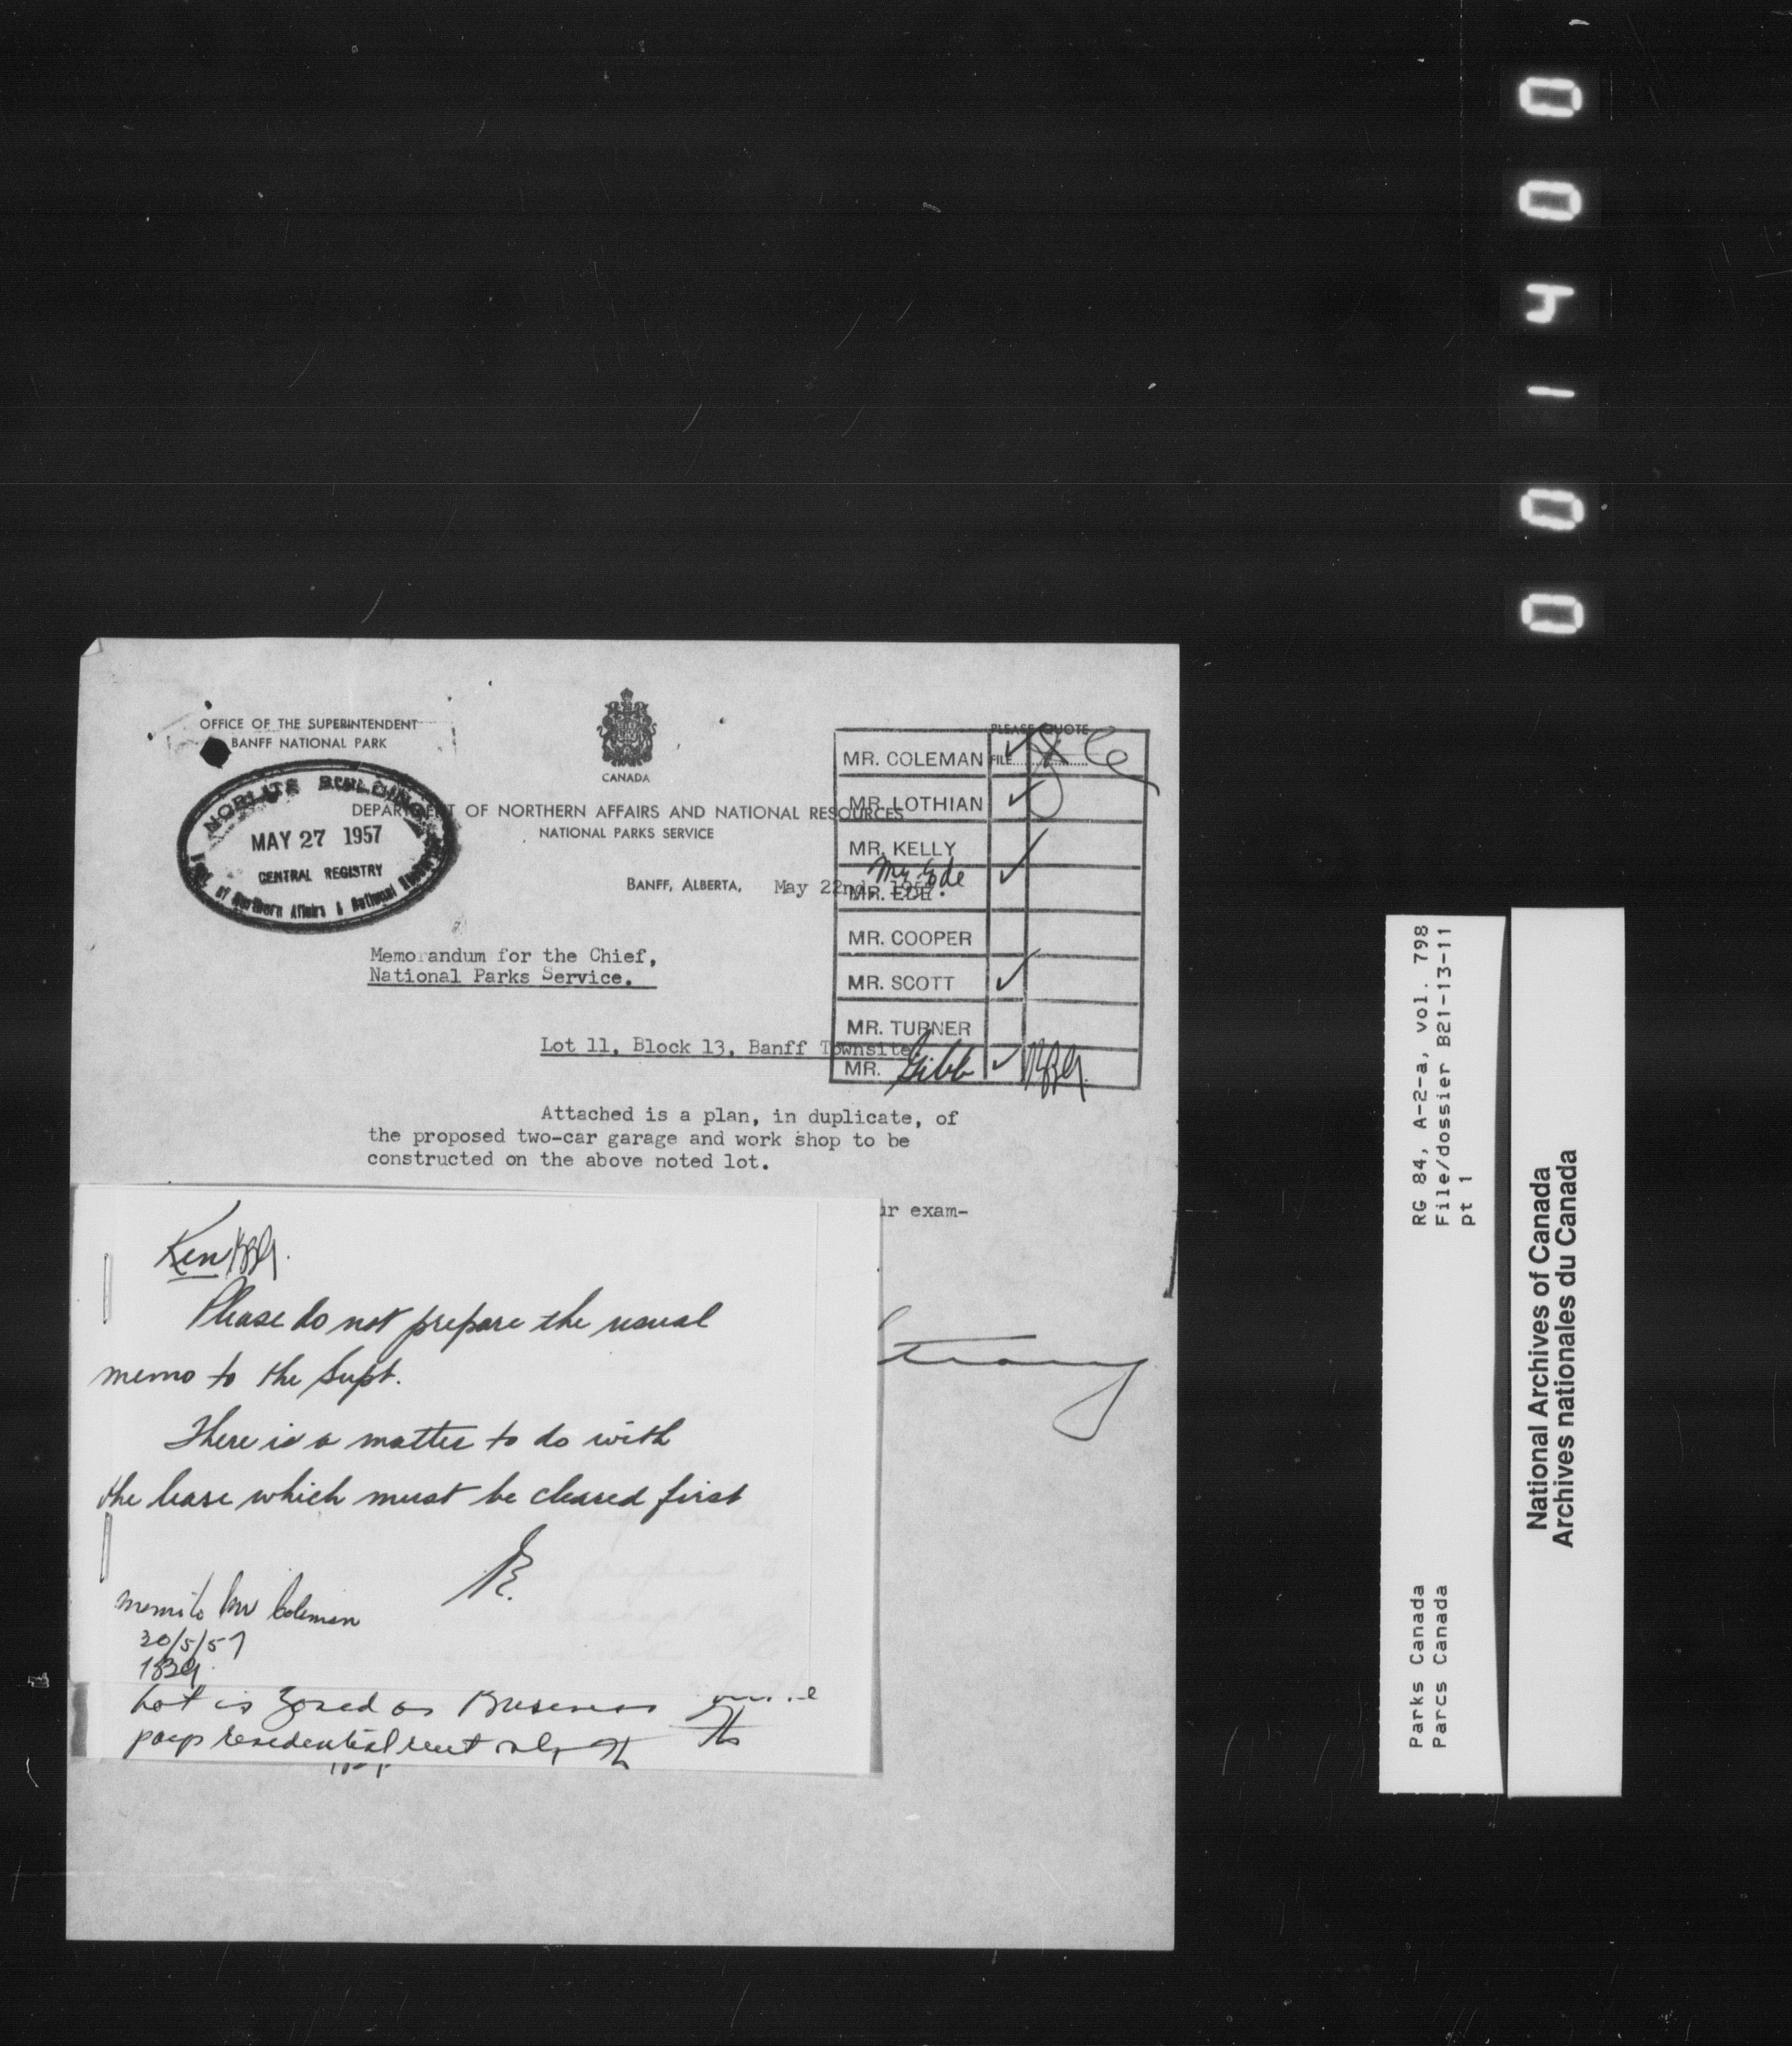 OFFICE OF THE SUPERINTENDENT
BANFF NATIONAL PARK
CANADA
DEPARTMENT OF NORTHERN AFFAIRS AND NATIONAL RESOURCES
NATIONAL PARKS SERVICE
NORLITE BUILDING
MAY 27 1957
CENTRAL REGISTRY
of Northern Affairs & National
BANFF, ALBERTA, May 22nd, 1957.
PLEASE QUOTE
FILE
MR. COLEMAN
MR. LOTHIAN
MR. KELLY
Mr. Ede
MR. EDE
MR. COOPER
MR. SCOTT
MR. TURNER
MR. Gibb
Memorandum for the Chief,
National Parks Service.
Lot 11, Block 13, Banff Townsite
Attached is a plan, in duplicate, of
the proposed two-car garage and work shop to be
constructed on the above noted lot.
ur exam-
Ken
Please do not prepare the usual
memo to the Supt.
There is a matter to do with
the lease which must be cleared first
memo to Mr Coleman
30/5/57
Lot is zoned as Business
pays residential rent only
0 0 4 1 0 0
RG 84, A-2-a, vol. 798
File/dossier B21-13-11
pt 1
Parks Canada
Parcs Canada
National Archives of Canada
Archives nationales du Canada